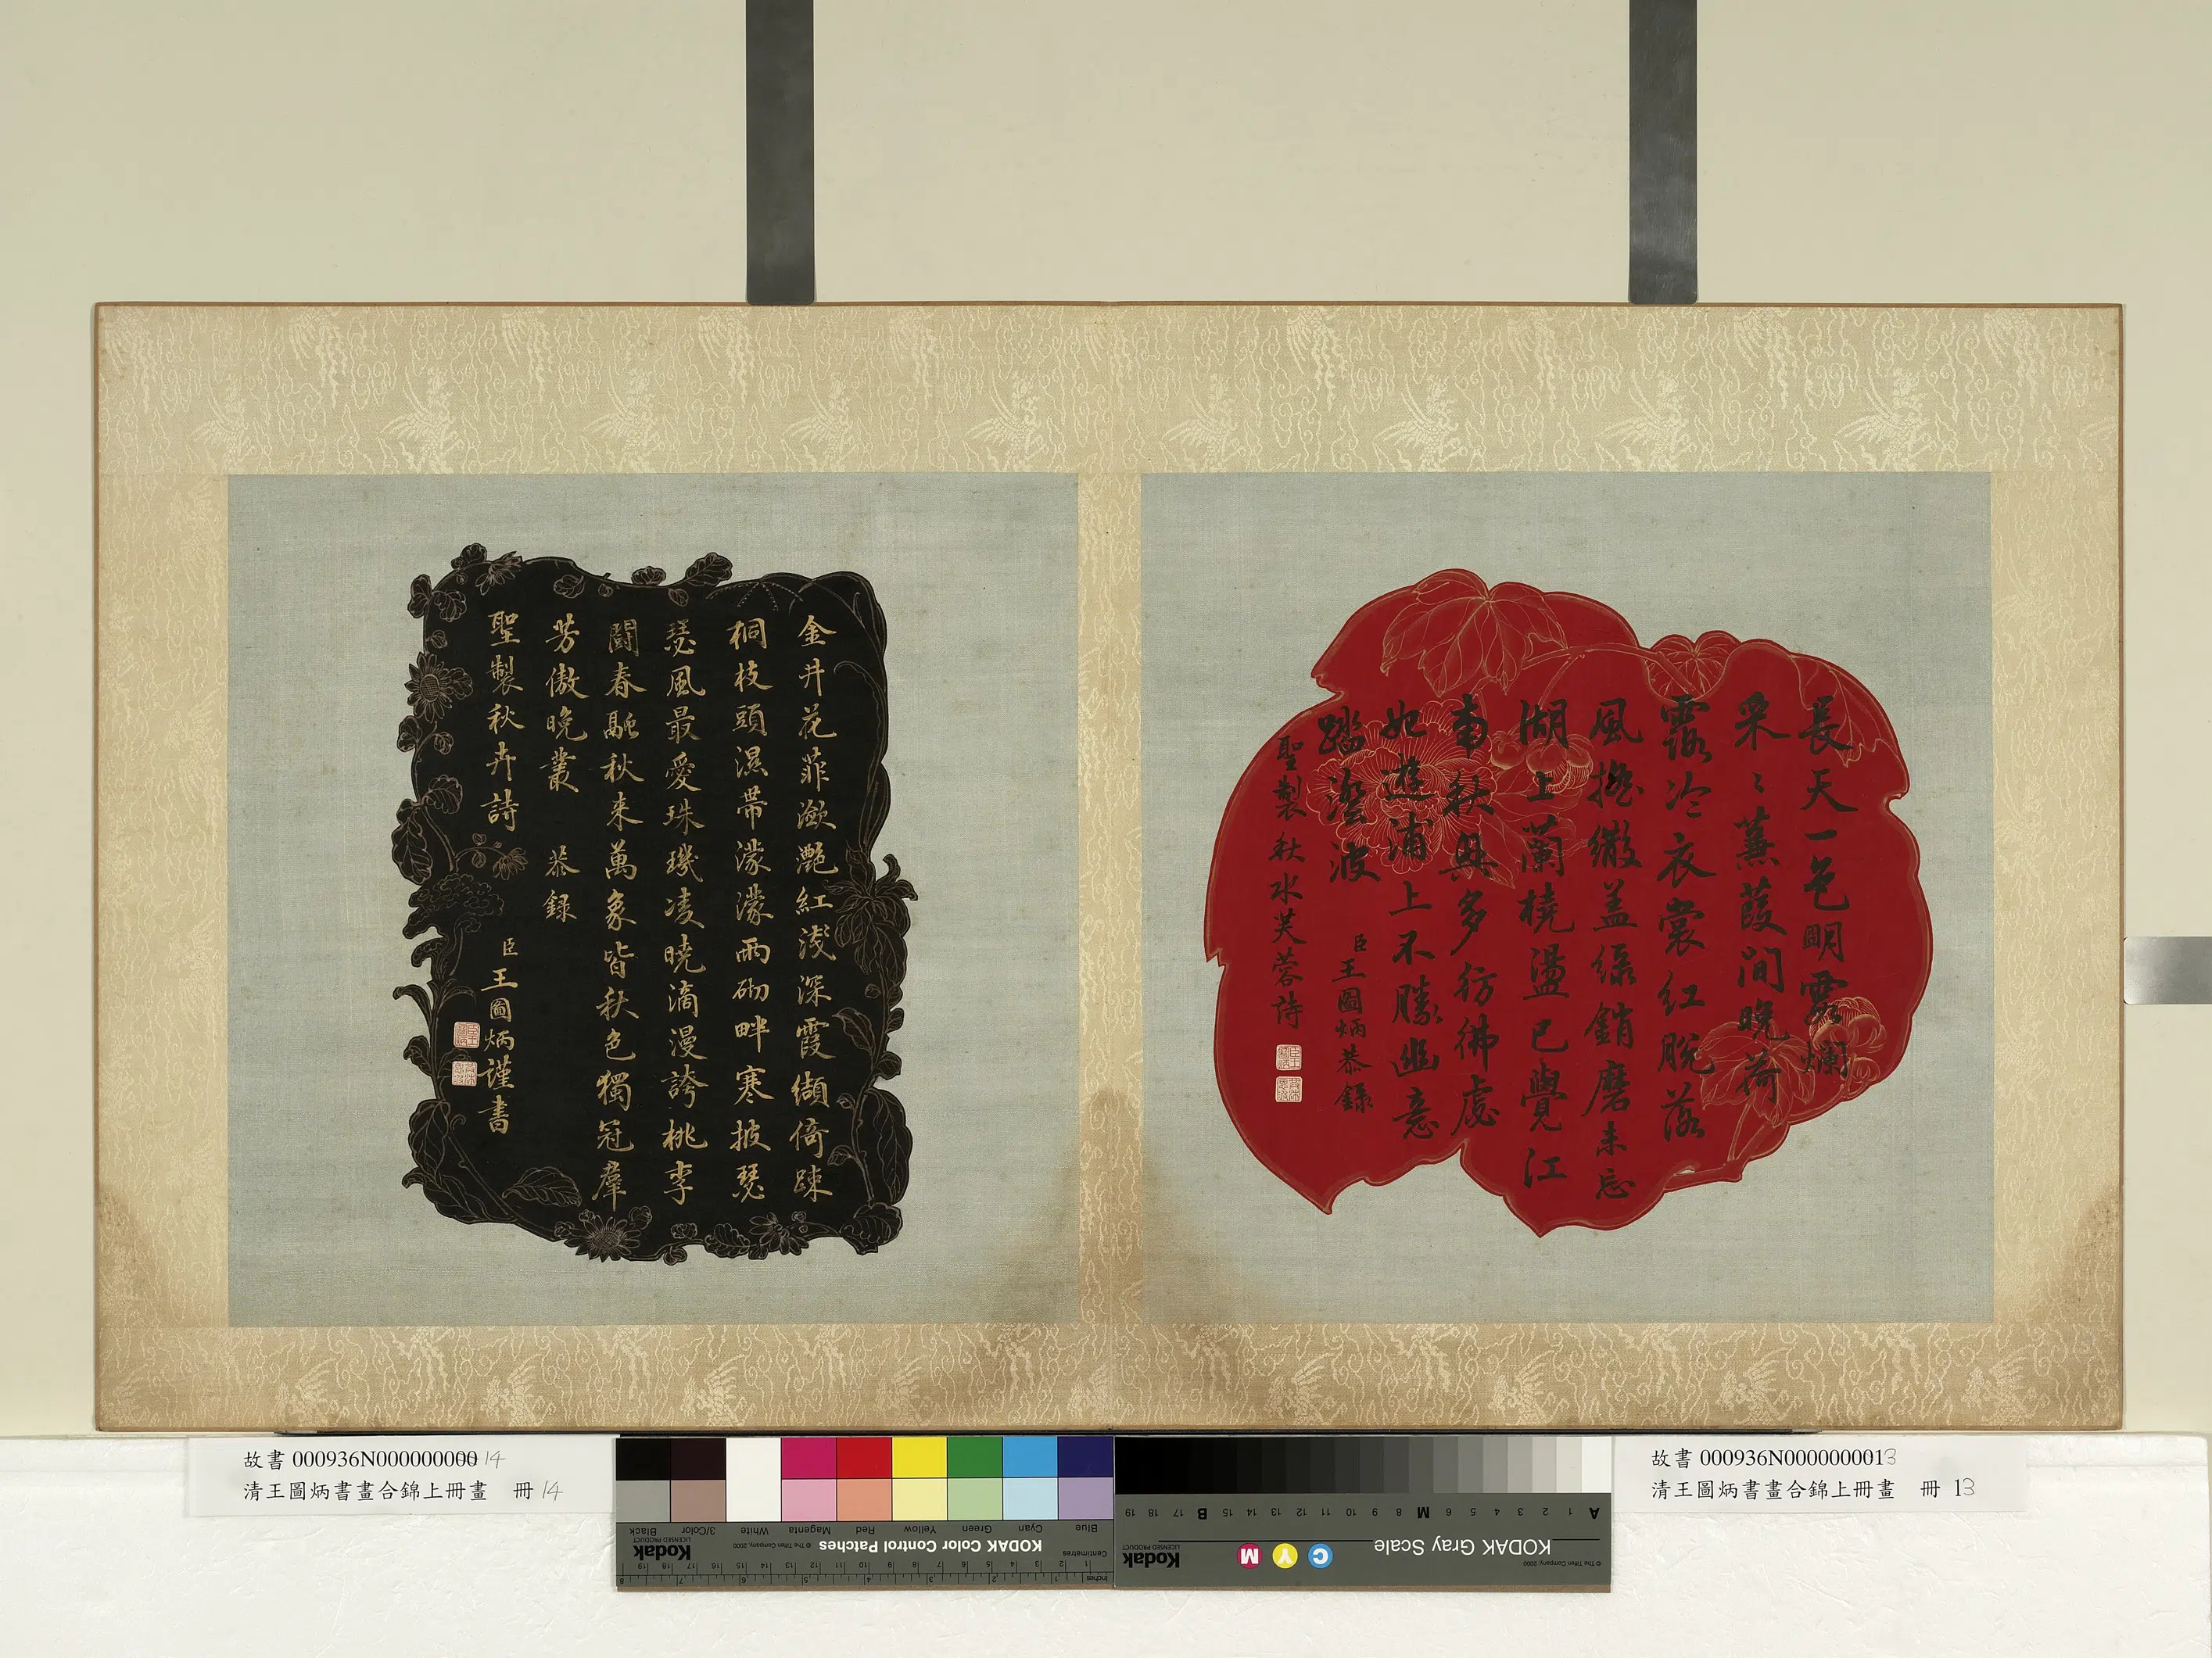 長天一色明霞爛
采〻蒹葭間晚荷
露冷衣裳紅脫落
風搖繖盖綠銷磨未忘
湖上蘭橈盪已覺江
南秋興多彷彿處
如遊浦上不勝幽意
踏澄波
臣王圖炳恭錄
聖製秋水芙蓉詩
金井花菲瀲灩紅淺深霞纈倚踈
桐枝頭濕帶濛濛雨砌畔寒披瑟
瑟風最愛珠璣凌曉滴漫誇桃李
鬪春融秋来萬象皆秋色獨冠羣
芳傲晚叢 恭録
聖製秋卉詩 臣王圖炳謹書
故書 000936N00000000000 14
清王圖炳書畫合錦上冊畫 冊 14
故書 000936N0000000013
清王圖炳書畫合錦上冊畫 冊 13
Blue Cyan Green Yellow Red Magenta White 3/Color Black
KODAK Color Control Patches
© The Tiffen Company, 2000
Kodak
LICENSED PRODUCT
Centimetres
Inches
A 1 2 3 4 5 6 M 8 9 10 11 12 13 14 15 B 17 18 19
KODAK Gray Scale
C Y M
Kodak
LICENSED PRODUCT
© The Tiffen Company, 2000